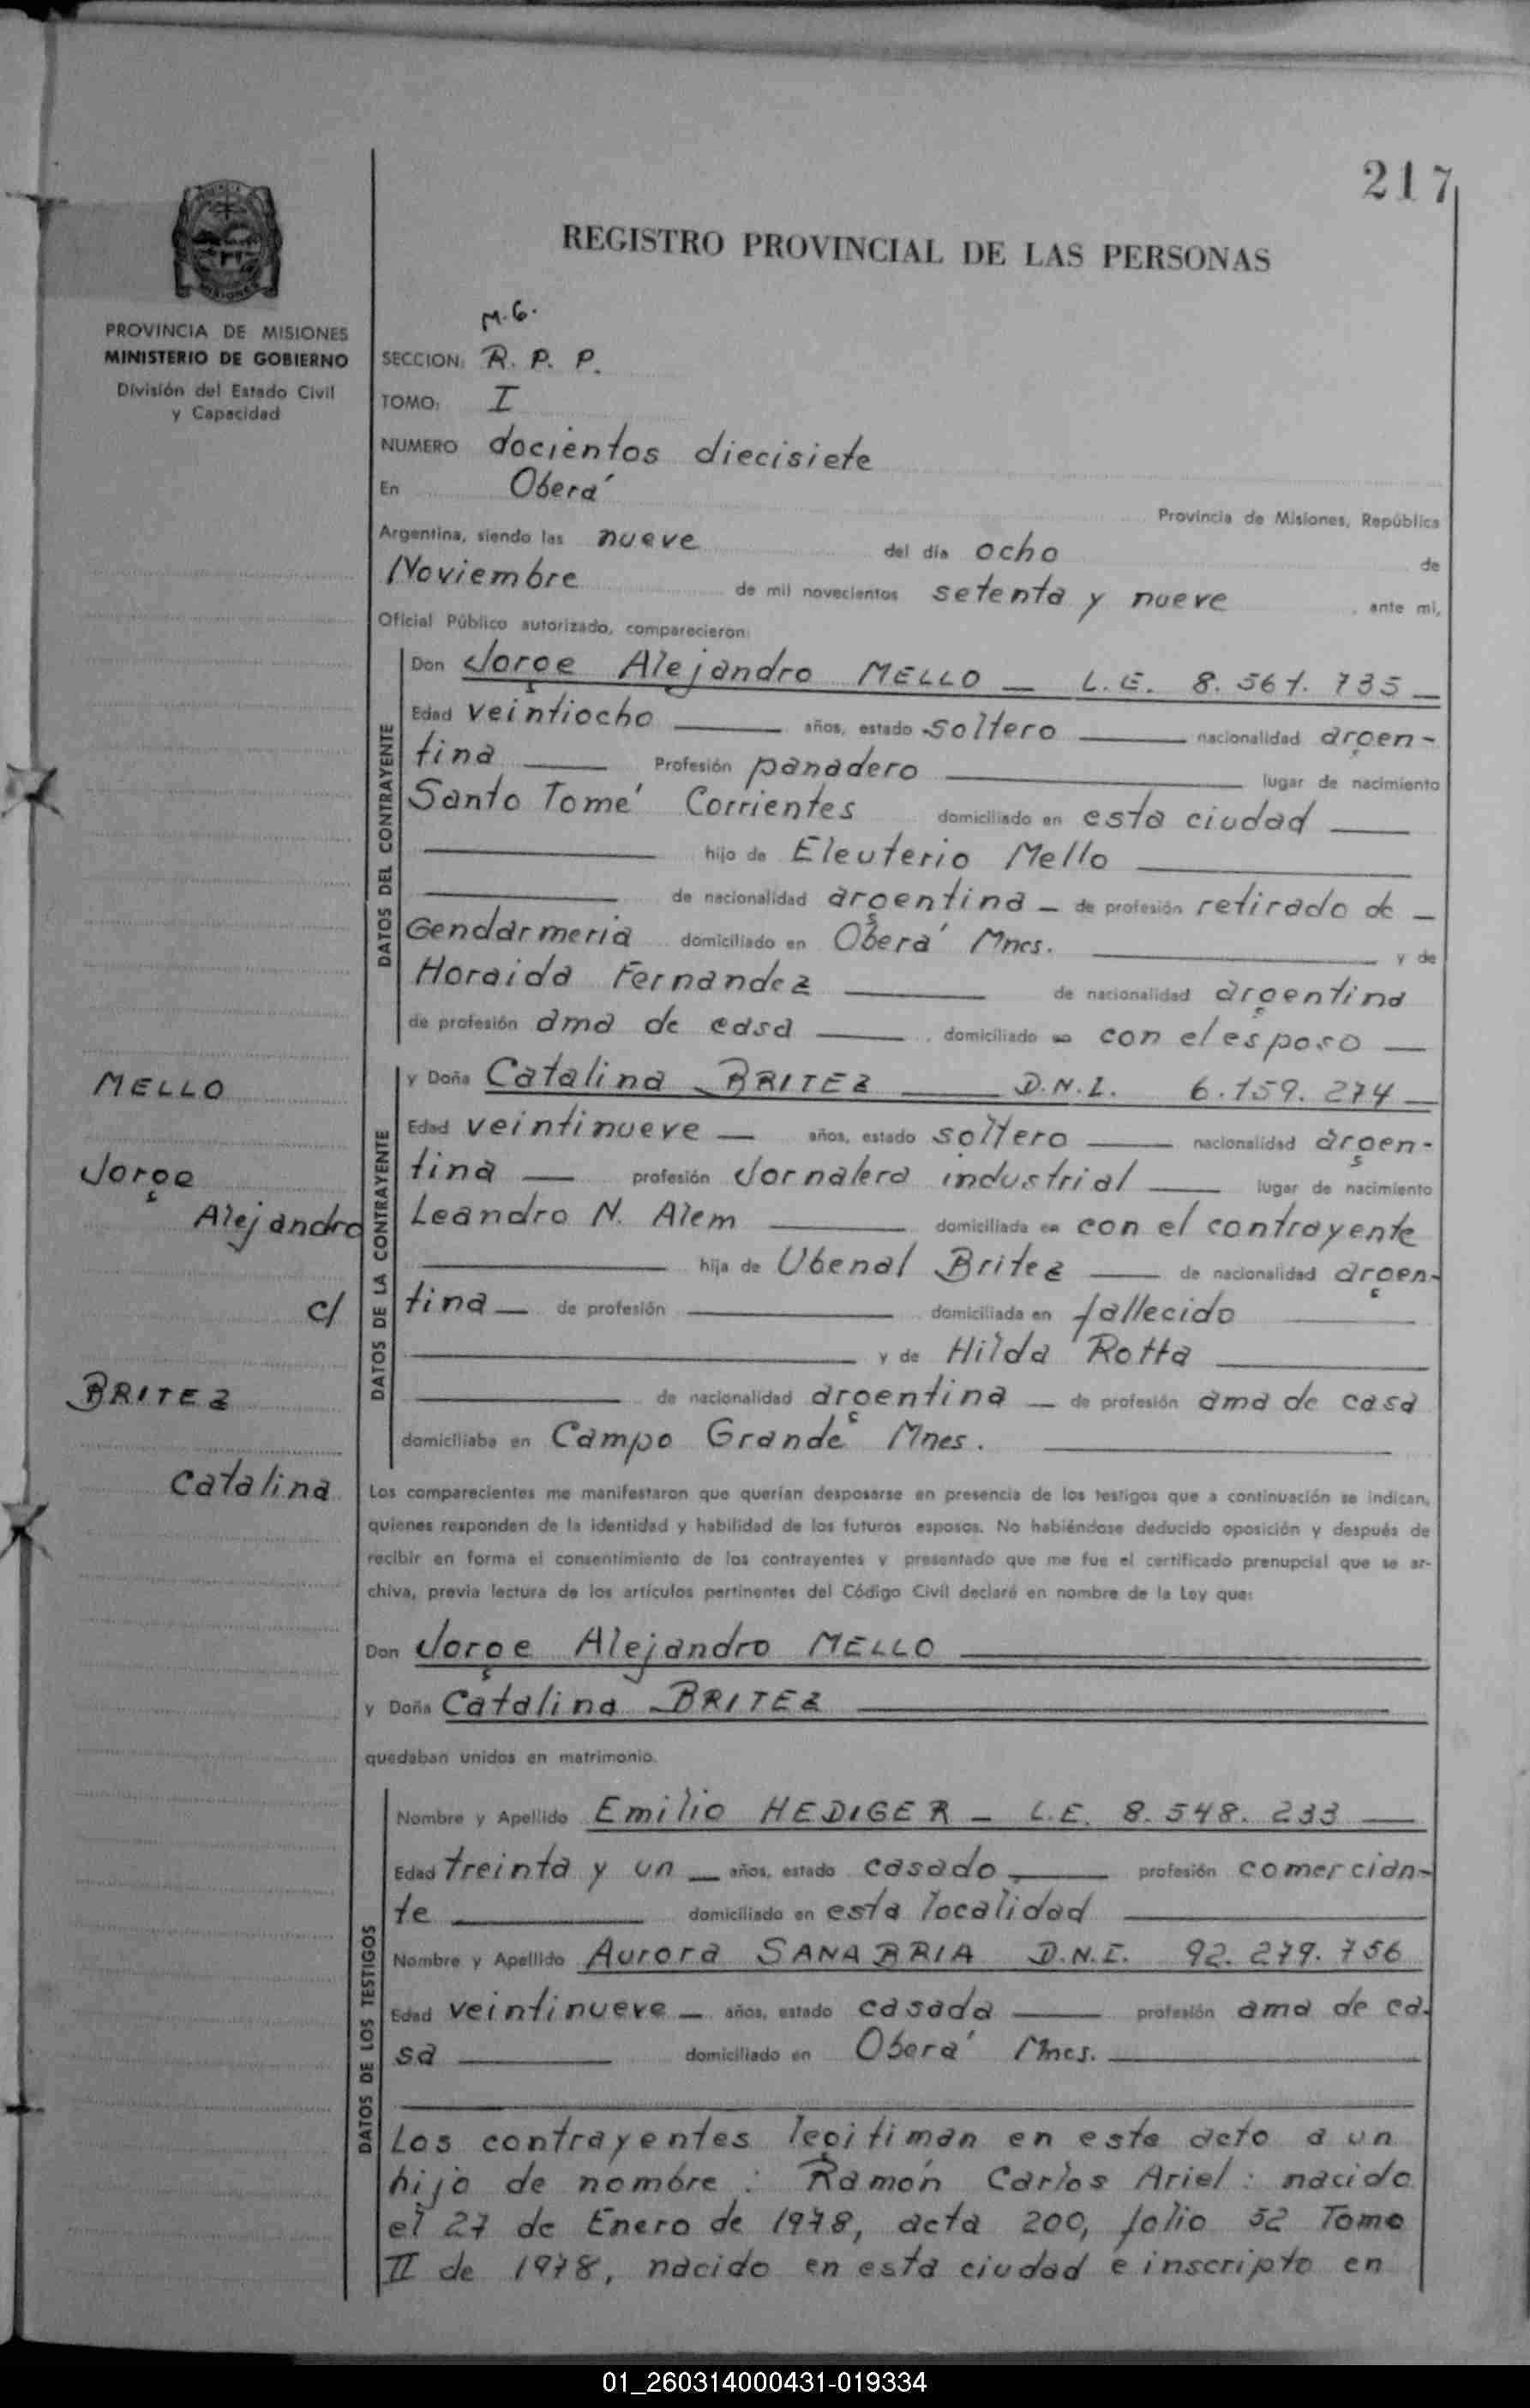 217
REGISTRO PROVINCIAL DE LAS PERSONAS
PROVINCIA DE MISIONES
MINISTERIO DE GOBIERNO
División del Estado Civil
y Capacidad
M.G.
SECCION: R. P. P.
TOMO: I
NUMERO docientos diecisiete
En Oberá
Provincia de Misiones, República
Argentina, siendo las nueve del día ocho de
Noviembre de mil novecientos setenta y nueve, ante mi,
Oficial Público autorizado, comparecieron:
DATOS DEL CONTRAYENTE
Don Jorge Alejandro MELLO — L.E. 8.567.735 —
Edad veintiocho años, estado soltero nacionalidad argen-
tina Profesión panadero lugar de nacimiento
Santo Tomé Corrientes domiciliado en esta ciudad
hijo de Eleuterio Mello
de nacionalidad argentina — de profesión retirado de —
Gendarmeria domiciliado en Oberá Mnes. y de
Horaida Fernandez de nacionalidad argentina
de profesión ama de casa, domiciliado en con el esposo —
MELLO
Jorge
Alejandro
c/
BRITEZ
Catalina
DATOS DE LA CONTRAYENTE
y Doña Catalina BRITEZ D.N.I. 6.159.274 —
Edad veintinueve — años, estado soltero nacionalidad argen-
tina — profesión Jornalera industrial lugar de nacimiento
Leandro N. Alem domiciliada en con el contrayente
hija de Ubenal Britez de nacionalidad argen-
tina — de profesión domiciliada en fallecido
y de Hilda Rotta
de nacionalidad argentina — de profesión ama de casa
domiciliaba en Campo Grande Mnes.
Los comparecientes me manifestaron que querían desposarse en presencia de los testigos que a continuación se indican,
quienes responden de la identidad y habilidad de los futuros esposos. No habiéndose deducido oposición y después de
recibir en forma el consentimiento de los contrayentes y presentado que me fue el certificado prenupcial que se ar-
chiva, previa lectura de los artículos pertinentes del Código Civil declaré en nombre de la Ley que:
Don Jorge Alejandro MELLO
y Doña Catalina BRITEZ
quedaban unidos en matrimonio.
DATOS DE LOS TESTIGOS
Nombre y Apellido Emilio HEDIGER — L.E. 8.548.233
Edad treinta y un — años, estado casado profesión comercian-
te domiciliado en esta localidad
Nombre y Apellido Aurora SANABRIA D.N.I. 92.279.756
Edad veintinueve — años, estado casada profesión ama de ca-
sa domiciliado en Oberá Mnes.
Los contrayentes legitiman en este acto a un
hijo de nombre: Ramón Carlos Ariel: nacido
el 27 de Enero de 1978, acta 200, folio 52 Tomo
II de 1978, nacido en esta ciudad e inscripto en
01_260314000431-019334